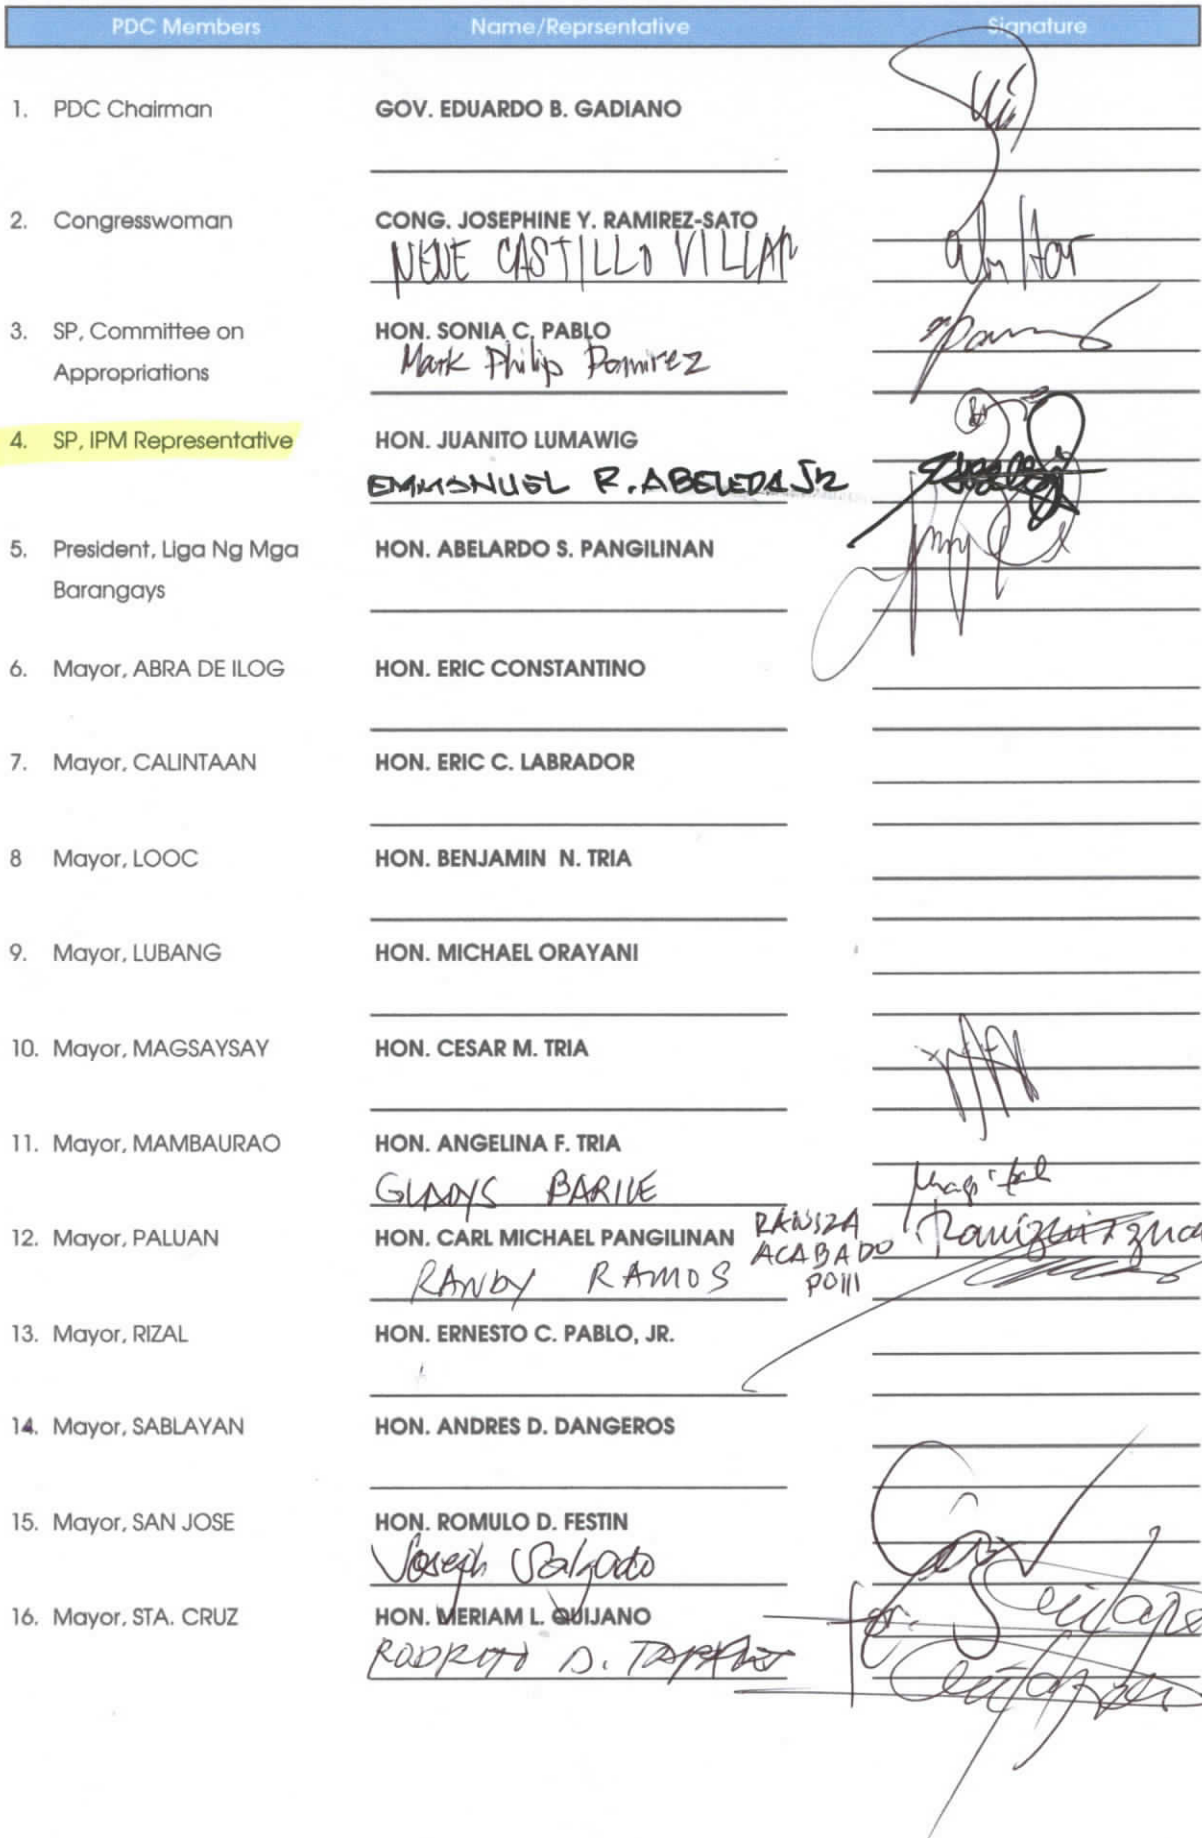 PDC Members Name/Reprsentative Signature
1. PDC Chairman GOV. EDUARDO B. GADIANO
2. Congresswoman CONG. JOSEPHINE Y. RAMIREZ-SATO
NENE CASTILLO VILLAR
3. SP, Committee on HON. SONIA C. PABLO
Appropriations Mark Philip Ramirez
4. SP, IPM Representative HON. JUANITO LUMAWIG
EMMANUEL R. ABELEDA JR
5. President, Liga Ng Mga HON. ABELARDO S. PANGILINAN
Barangays
6. Mayor, ABRA DE ILOG HON. ERIC CONSTANTINO
7. Mayor, CALINTAAN HON. ERIC C. LABRADOR
8 Mayor, LOOC HON. BENJAMIN N. TRIA
9. Mayor, LUBANG HON. MICHAEL ORAYANI
10. Mayor, MAGSAYSAY HON. CESAR M. TRIA
11. Mayor, MAMBAURAO HON. ANGELINA F. TRIA
GLADYS BARILE
12. Mayor, PALUAN HON. CARL MICHAEL PANGILINAN RANIZA
ACABADO
RANDY RAMOS POIII
13. Mayor, RIZAL HON. ERNESTO C. PABLO, JR.
14. Mayor, SABLAYAN HON. ANDRES D. DANGEROS
15. Mayor, SAN JOSE HON. ROMULO D. FESTIN
Joseph Salgado
16. Mayor, STA. CRUZ HON. MERIAM L. QUIJANO
for.
D.